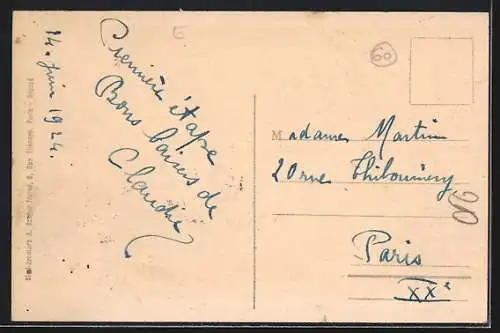 14. Juin 1924.
Première étape
Bons baisers de
Claudie
Madame Martin
20 rue Thiboumery
Paris
XXe
60
60